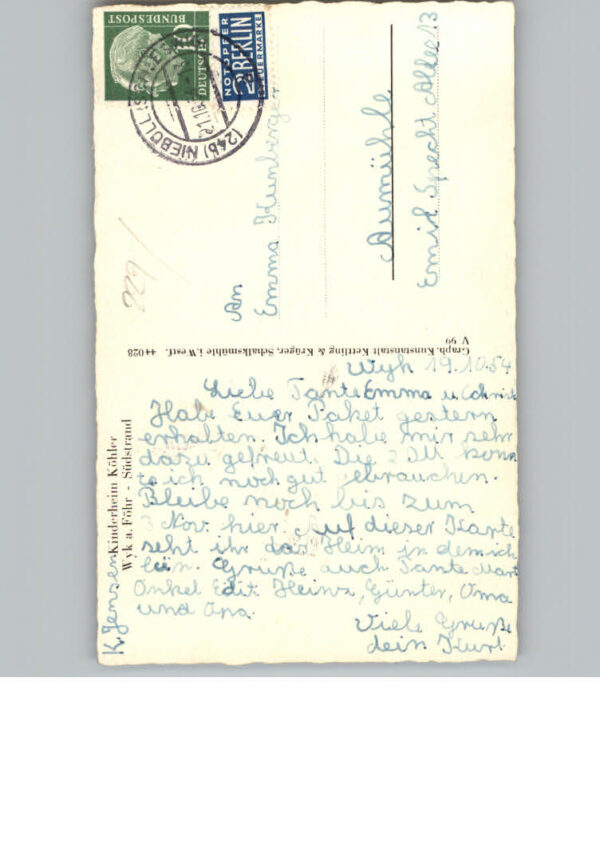 10
DEUTSCHE
BUNDESPOST
NOTOPFER
2 BERLIN
STEUERMARKE
(24b) NIEBÜLL (SCHLESW)
An
Emma Kunberger
Aumühle
Emil Specht Allee 13
622
Graph. Kunstanstalt Kettling & Krüger, Schalksmühle i. Westf. 44 028
V 99
Kinderheim Köhler
Wyk a. Föhr - Südstrand
K. Jensen
Wyk 19.10.54
Liebe Tante Emma u.
Habe Euer Paket gestern
erhalten. Ich habe mir sehr
dazu gefreut. Die 2 DM konn
te ich noch gut gebrauchen.
Bleibe noch bis zum
3 Nov. hier. Auf dieser Karte
seht ihr das Heim in dem ich
bin. Gruße auch Tante
Onkel Edit Heinz, Günter, Oma
und Opa.
Viele Gruße
dein Kurt